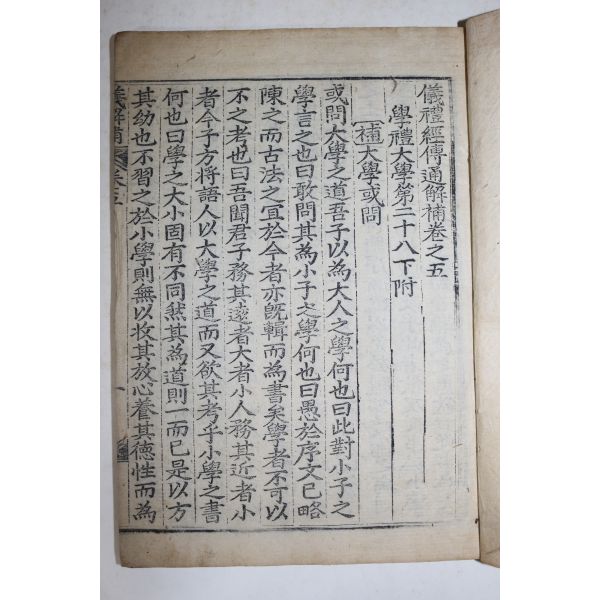 儀禮經傳通解補卷之五
學禮大學第二十八下附
補大學或問
或問大學之道吾子以為大人之學何也曰此對小子之
學言之也曰敢問其為小子之學何也曰愚於序文已略
陳之而古法之冝於今者亦旣輯而為書矣學者不可以
不之考也曰吾聞君子務其遠者大者小人務其近者小
者今子方將語人以大學之道而又欲其考乎小學之書
何也曰學之大小固有不同然其為道則一而已是以方
其幼也不習之於小學則無以收其放心養其德性而為
儀解補 卷五